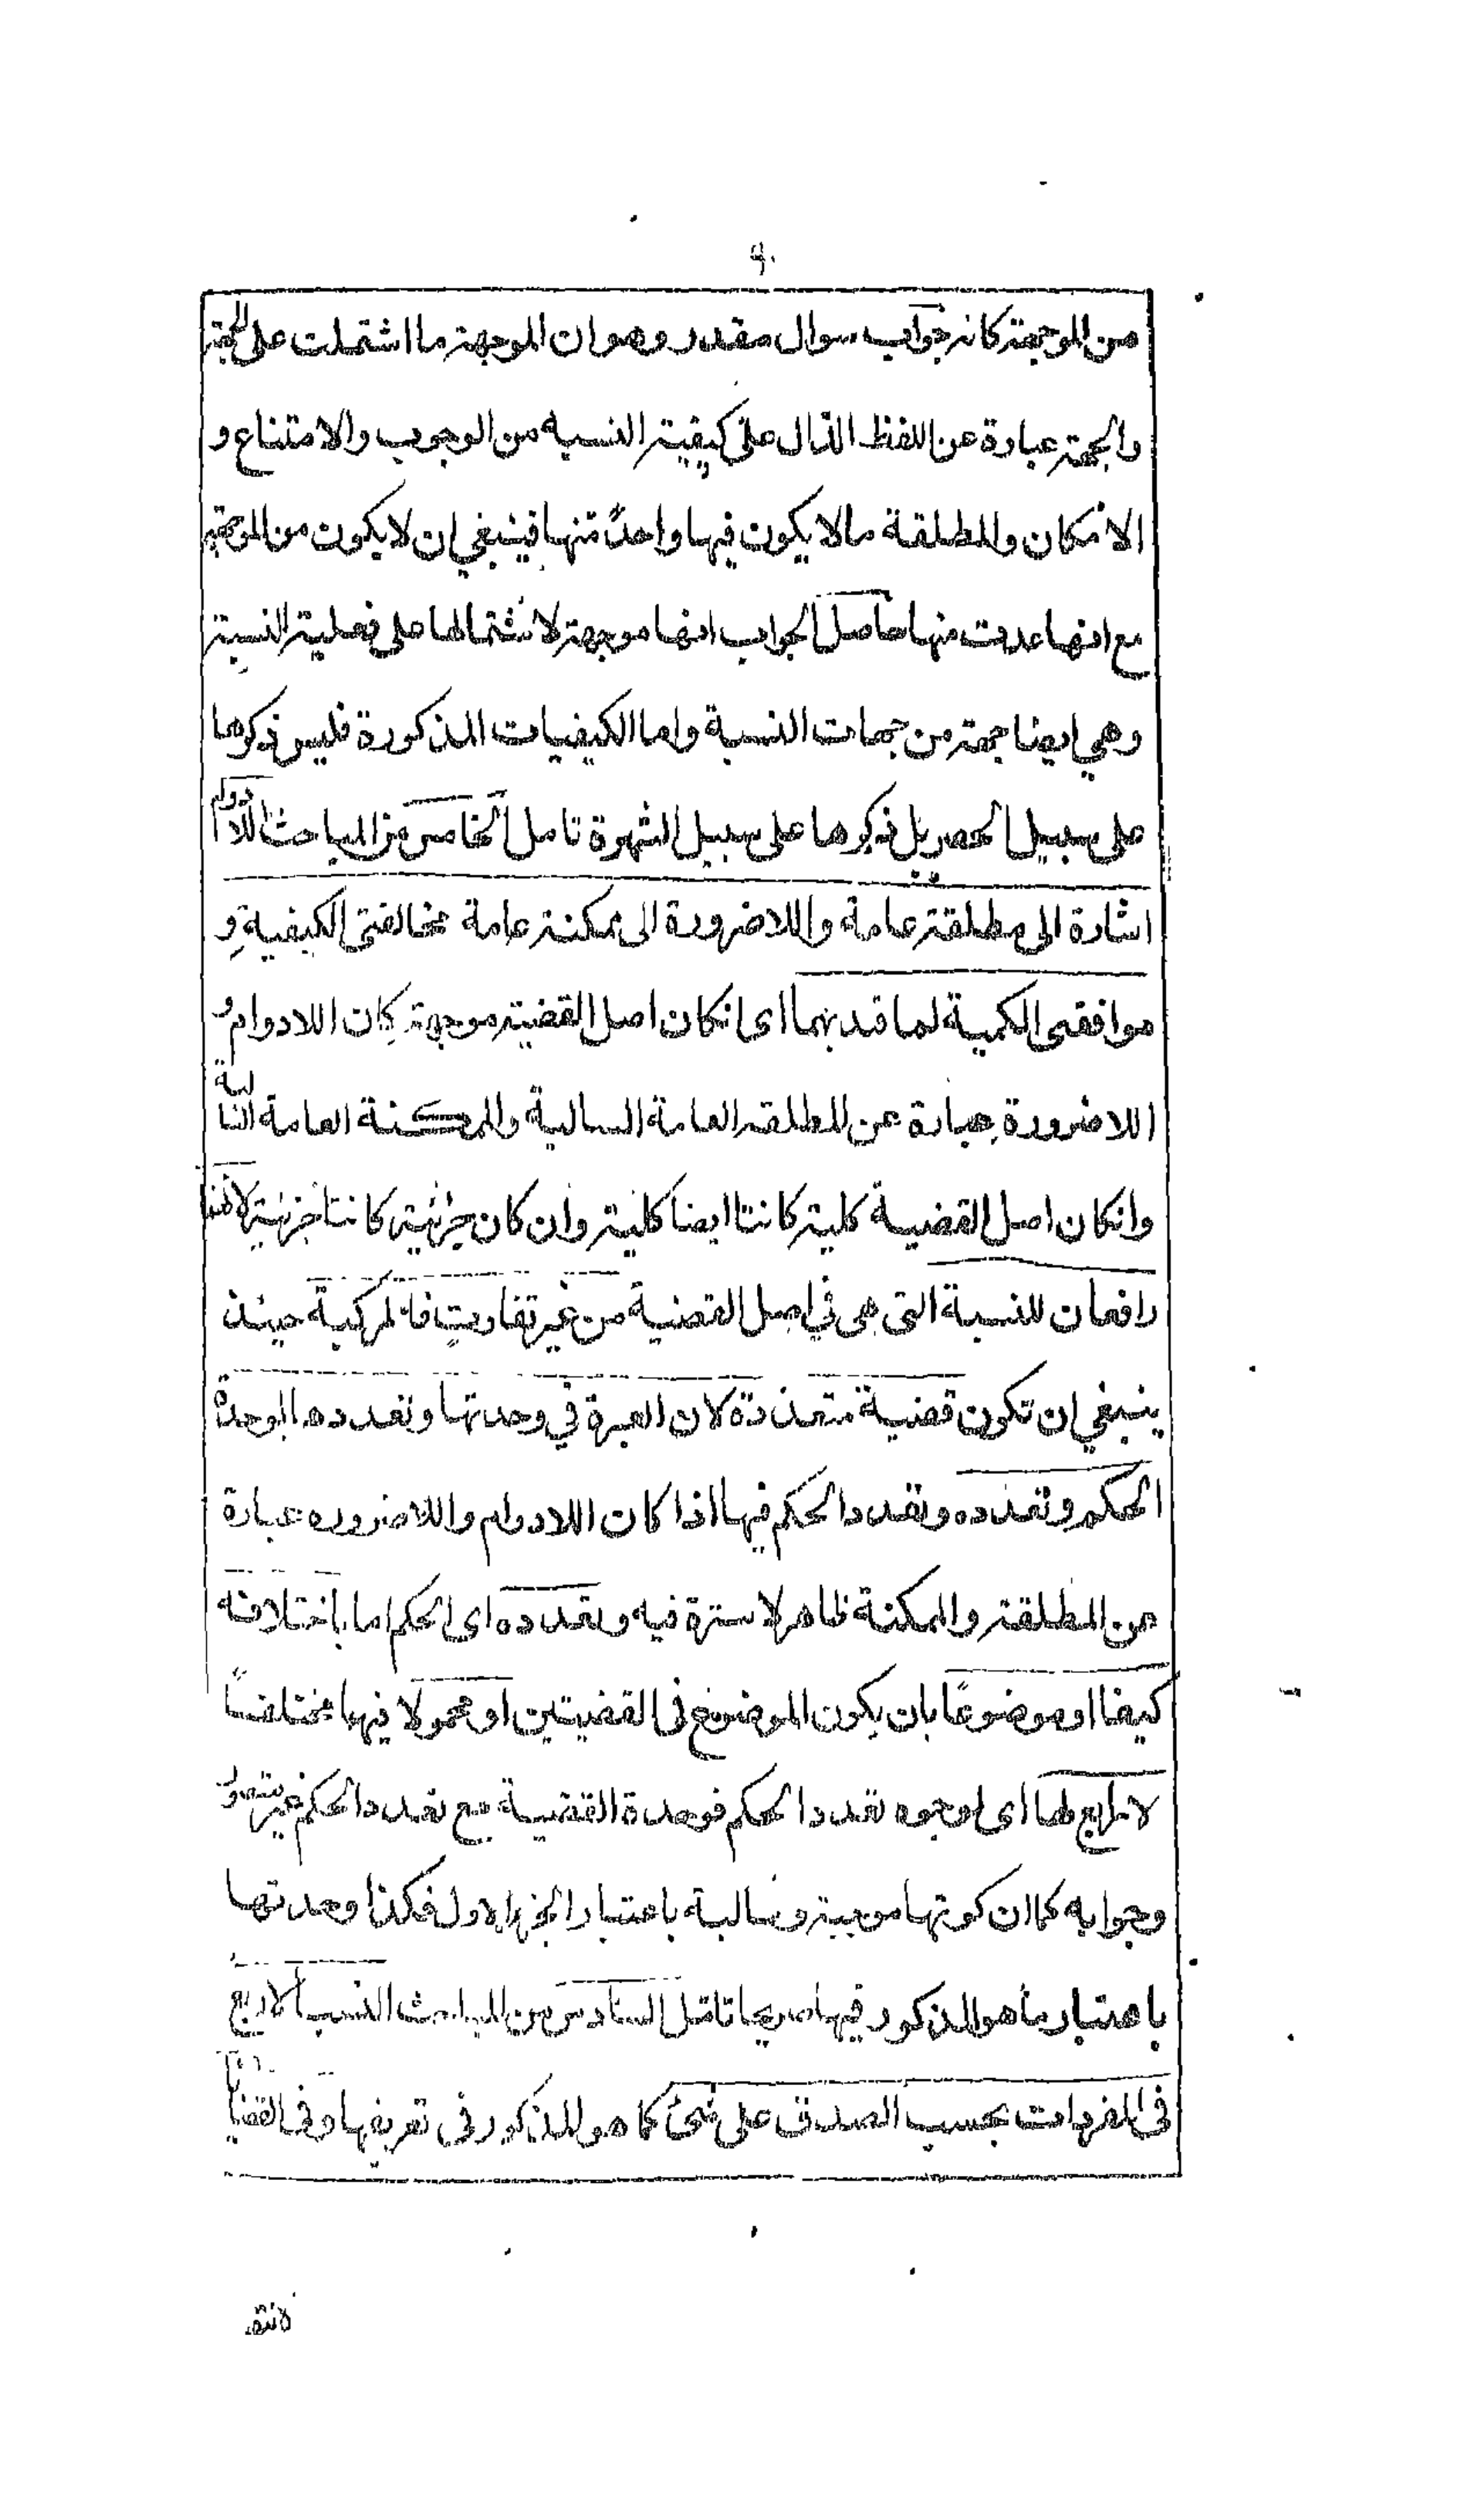 ٩٠
من الموجهة كانه جواب سوال مقدر وهو ان الموجهة ما اشتملت على الجهة
والجهة عبارة عن اللفظ الدال على كيفية النسبة من الوجوب والامتناع و
الامكان والمطلقة مالا يكون فيها واحدً منها فينبغي ان لا يكون من الموجهة
مع انها عدت منها حاصل الجواب انها موجهة لاشتمالها على فعلية النسبة
وهي ايضا جهة من جهات النسبة واما الكيفيات المذكورة فليس ذكرها
على سبيل الحصر بل ذكرها على سبيل الشهرة تامل الخامس من المباحث اللادوام
اشارة الى مطلقة عامة واللاضرورة الى ممكنة عامة مخالفتى الكيفية و
موافقى الكمية لما قيد بهما اى انكان اصل القضية موجهة كان اللادوام و
اللاضرورة عبارة عن المطلقة العامة السالبة والممكنة العامة السالبة
وانكان اصل القضية كلية كانتا ايضا كلية وان كان جزئية كانتا جزئية لانهما
رافعان للنسبة التى هى في اصل القضية من غير تفاوت فالمركبة حينئذ
ينبغي ان تكون قضية متعددة لان العبرة في وحدتها وتعددها بوحدة
الحكم وتعدده وتعدد الحكم فيها اذا كان اللادوام واللاضروره عبارة
عن المطلقة والممكنة ظاهر لا سترة فيه وتعدده اى الحكم اما باختلافه
كيفا او موضوعًا بان يكون الموضوع فى القضيتين او محمولا فيها مختلفاً
لا رابع لها اى لوجوه تعدد الحكم فوحدة القضية مع تعدد الحكم غير متصور
وجوابه كما ان كونها موجبة وسالبة باعتبار الجزء الاول فكذا وحدتها
باعتبار ما هو المذكور فيها صريحا تامل السادس من المباحث النسب الاربع
فى المفردات بحسب الصدق على شئ كما هو المذكور فى تعريفها وفى القضايا